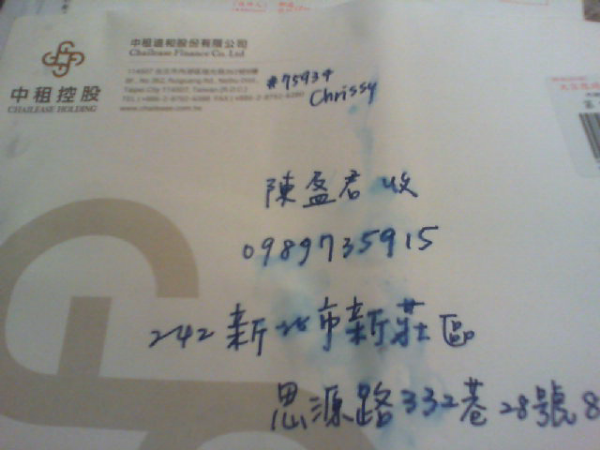 中租迪和股份有限公司
Chailease Finance Co. Ltd.
中租控股
CHAILEASE HOLDING
www.chailease.com.tw
#75934
Chrissy
陳盈君 收
0989735915
242 新北市新莊區
思源路332巷28號8